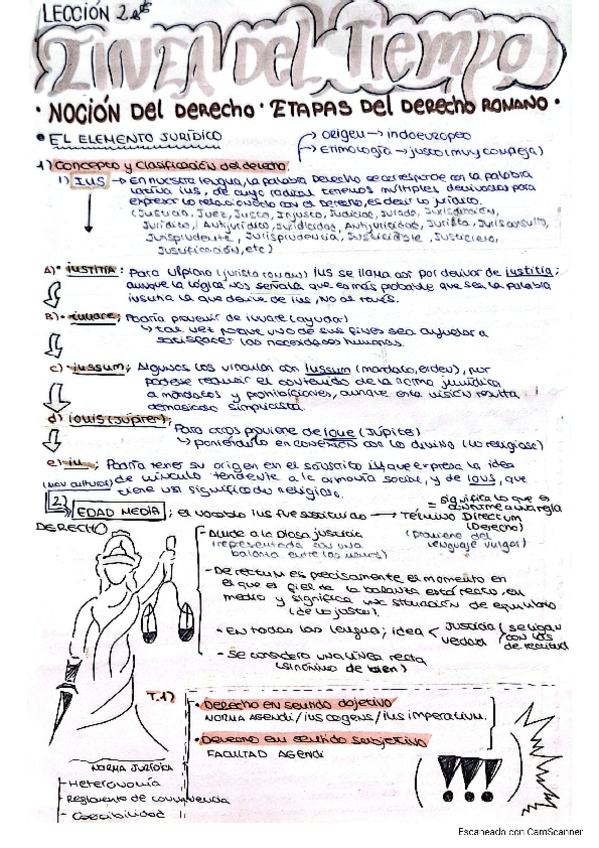 LECCIÓN 2
LINEA DEL TIEMPO
• NOCIÓN DEL DERECHO • ETAPAS DEL DERECHO ROMANO •
• EL ELEMENTO JURÍDICO
→ origen → indoeuropeo
→ Etimología → justo (muy compleja)
1) Concepto y clasificación del derecho.
1) IUS → En nuestra lengua, la palabra Derecho se corresponde con la palabra
latina ius, de cuyo radical tenemos múltiples derivados para
expresar lo relacionado con el Derecho, es decir lo jurídico.
(Justicia, Juez, Juicio, Injusto, Judicial, Jurado, Jurisdicción,
Jurídico, Antijurídico, Juridicidad, Antijuricidad, Jurista, Jurisconsulto,
Jurisprudente, Jurisprudencia, Justiciable, Justiciero,
Justificación, etc)
A) • iustitia: Para Ulpiano (jurista romano) ius se llama así por derivar de iustitia;
aunque la lógica nos señala que es más probable que sea la palabra
iustitia la que derive de ius, no al revés.
B) • iuvare; Podría provenir de iuvare (ayudar)
↳ tal vez porque uno de sus fines sea ayudar a
satisfacer las necesidades humanas.
c) • iussum; Algunos los vinculan con Iussum (mandato, orden), por
poderse reducir el contenido de la norma jurídica
a mandatos y prohibiciones, aunque esta visión resulta
demasiado simplicista.
d) iouis (Júpiter);
Para otros proviene de Ioue (Júpiter)
↳ poniéndolo en conexión con lo divino (lo religioso)
e) • iu; Podría tener su origen en el sánscrito iu que expresa la idea
de vínculo tendente a la armonía social, y de ious, que
tiene un significado religioso.
2) EDAD MEDIA; el vocablo ius fue sustituido → Término Directum
(Derecho)
= significa lo que es
conforme a una regla
(proviene del
lenguaje vulgar)
DERECHO
- Alude a la diosa justicia
(representada con una
balanza entre las manos)
- Derectum es precisamente el momento en
el que el fiel de la balanza está recto, en
medio y significa una situación de equilibrio
(de lo justo).
- En todas las lengua; idea < Justicia
verdad
(se ligan
con los
de rectitud
- Se considero una línea recta
(sinónimo de bien)
T.1)
• Derecho en sentido objetivo
NORMA AGENDI / ius cogens / ius imperativum.
• Derecho en sentido subjetivo
FACULTAD AGENDI
NORMA JURÍDICA
- Heteronomía
- Reglamento de convivencia
- Coercibilidad
(!!!)
Escaneado con CamScanner